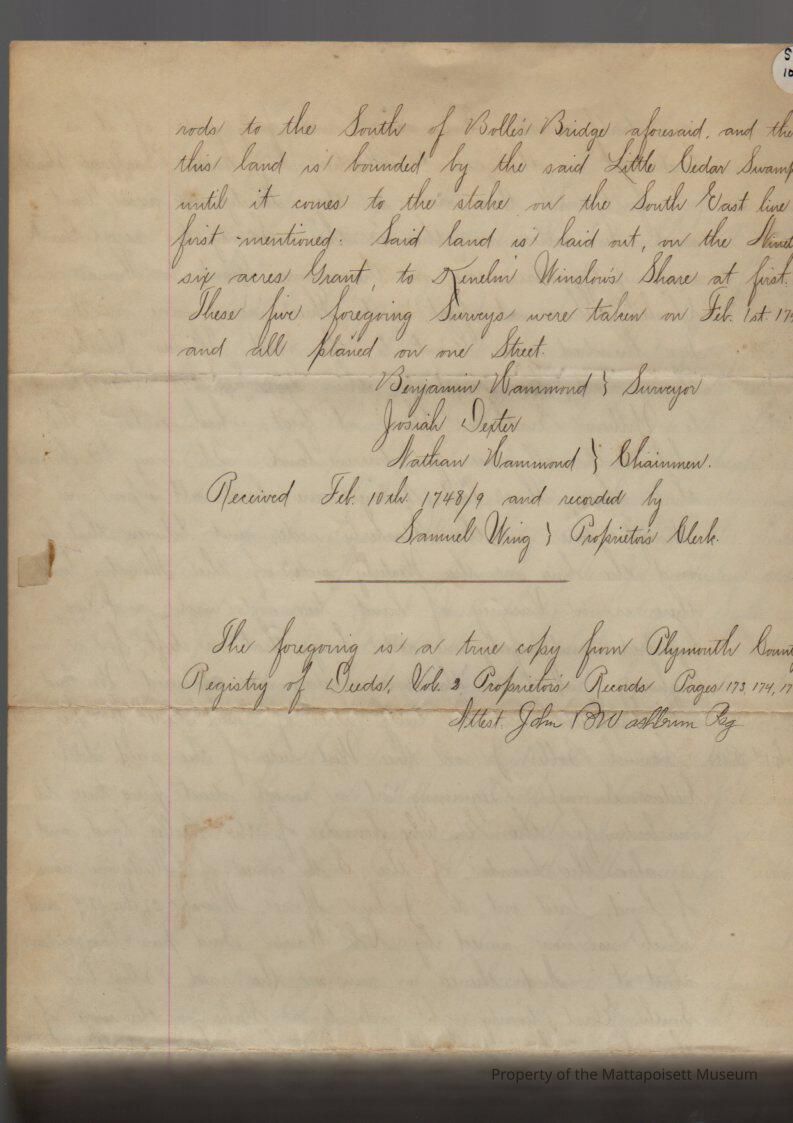 rods to the South of Bolles' Bridge aforesaid, and the
this land is bounded by the said Little Cedar Swamp
until it comes to the stake on the South East line
first mentioned: Said land is laid out, on the
six acres Grant, to Kenelm Winslow's Share at first.
These five foregoing Surveys were taken on Feb. 1st.
and all planed on one Street.
Benjamin Hammond } Surveyor
Josiah Dexter
Nathan Hammond } Chainmen.
Received Feb. 10th. 1748/9 and recorded by
Samuel Wing } Proprietor's Clerk.
The foregoing is a true copy from Plymouth
Registry of Deeds, Vol. 2 Proprietor's Records Pages 173, 174,
Attest. John B Washburn Reg
Property of the Mattapoisett Museum